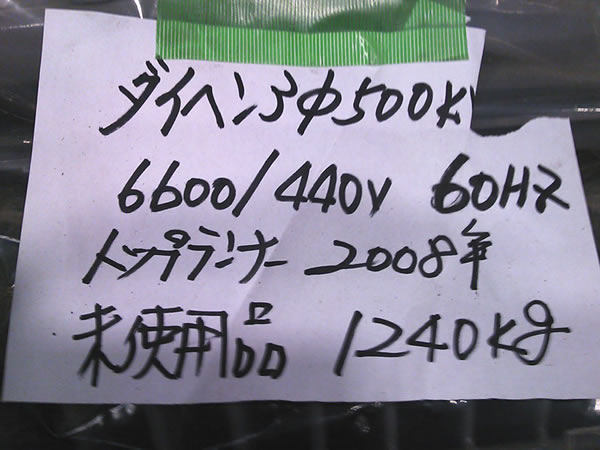 ダイヘン 3φ500K
6600/440V 60Hz
トップランナー 2008年
未使用品 1240kg